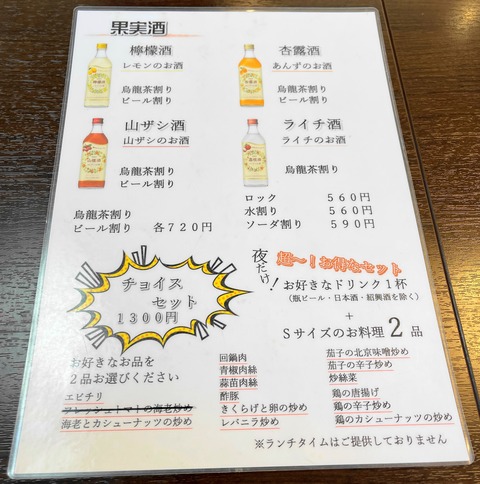 果実酒
檸檬酒
レモンのお酒
烏龍茶割り
ビール割り
杏露酒
あんずのお酒
烏龍茶割り
ビール割り
山ザシ酒
山ザシのお酒
烏龍茶割り
ビール割り
ライチ酒
ライチのお酒
烏龍茶割り
烏龍茶割り
ビール割り 各720円
ロック 560円
水割り 560円
ソーダ割り 590円
チョイス
セット
1300円
夜だけ!
超〜!お得なセット
お好きなドリンク1杯
(瓶ビール・日本酒・紹興酒を除く)
+
Sサイズのお料理2品
お好きなお品を
2品お選びください
エビチリ
フレッシュトマトの海老炒め
海老とカシューナッツの炒め
回鍋肉
青椒肉絲
蒜苗肉絲
酢豚
きくらげと卵の炒め
レバニラ炒め
茄子の北京味噌炒め
茄子の辛子炒め
炒絲菜
鶏の唐揚げ
鶏の辛子炒め
鶏のカシューナッツの炒め
※ランチタイムはご提供しておりません